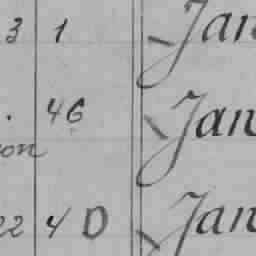 3 1 Jan
46 Jan
on
22 4 D Jan